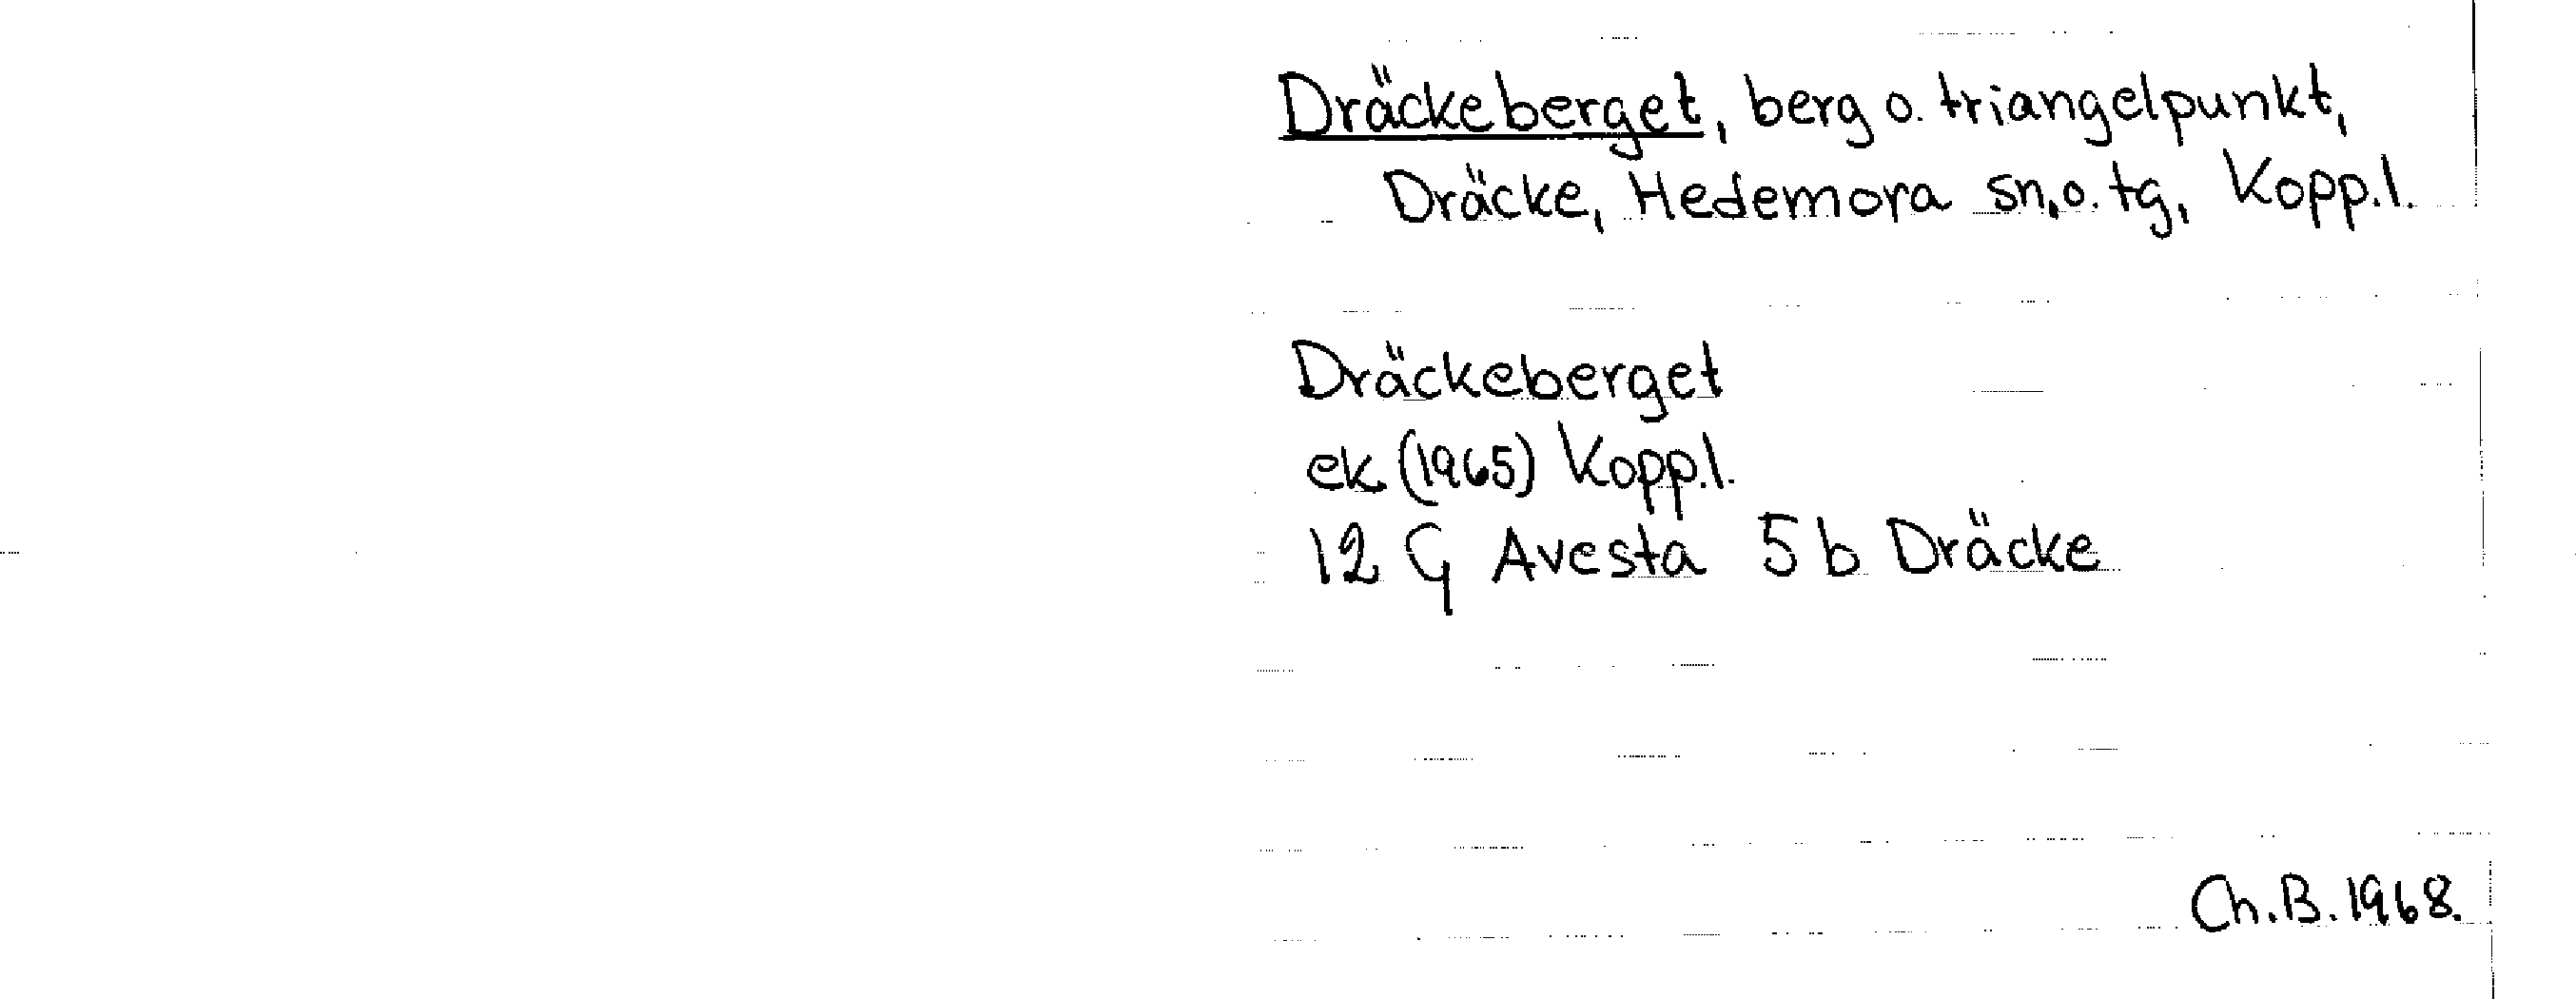 Dräckeberget, berg o. triangelpunkt,
Dräcke, Hedemora sn. o. tg, Kopp.l.
Dräckeberget
ek (1965) Kopp.l.
12 G Avesta 5 b Dräcke
Ch.B. 1968.